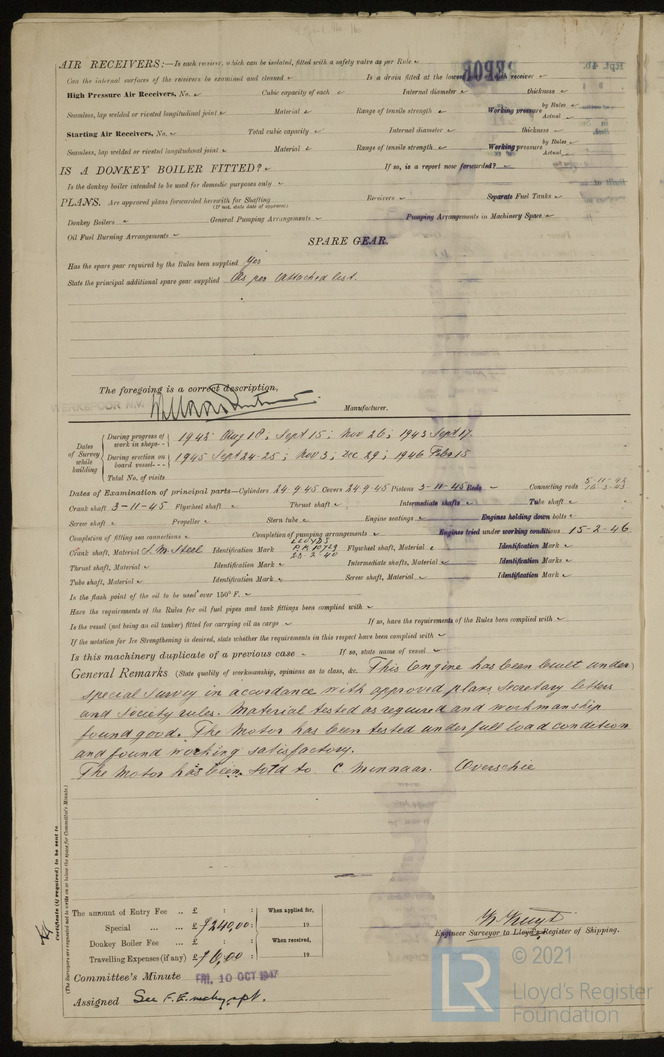 Rpt. 4b.
AIR RECEIVERS:—Is each receiver, which can be isolated, fitted with a safety valve as per Rule ✓
Can the internal surfaces of the receivers be examined and cleaned ✓ Is a drain fitted at the lowest receiver ✓
High Pressure Air Receivers, No. ✓ Cubic capacity of each ✓ Internal diameter ✓ thickness ✓
Seamless, lap welded or riveted longitudinal joint ✓ Material ✓ Range of tensile strength ✓ Working pressure by Rules ✓ Actual ✓
Starting Air Receivers, No. ✓ Total cubic capacity ✓ Internal diameter ✓ thickness ✓
Seamless, lap welded or riveted longitudinal joint ✓ Material ✓ Range of tensile strength ✓ Working pressure by Rules ✓ Actual ✓
IS A DONKEY BOILER FITTED? ✓ If so, is a report now forwarded? ✓
Is the donkey boiler intended to be used for domestic purposes only ✓
PLANS. Are approved plans forwarded herewith for Shafting ✓ Receivers ✓ Separate Fuel Tanks ✓
(If not, state date of approval)
Donkey Boilers ✓ General Pumping Arrangements ✓ Pumping Arrangements in Machinery Space ✓
Oil Fuel Burning Arrangements ✓
SPARE GEAR.
Has the spare gear required by the Rules been supplied Yes
State the principal additional spare gear supplied As per attached list.
The foregoing is a correct description,
WERKSPOOR N.V.
Manufacturer.
Dates of Survey while building
During progress of work in shops - - 1943 Aug 18; Sept 15; Nov 26; 1945 Sept 17.
During erection on board vessel - - - 1945 Sept 24-25; Nov 3; Dec 29; 1946 Feb 15
Total No. of visits
Dates of Examination of principal parts—Cylinders 24.9.45 Covers 24.9.45 Pistons 3-11-45 Rods ✓ Connecting rods
Crank shaft 3-11-45 Flywheel shaft ✓ Thrust shaft ✓ Intermediate shafts ✓ Tube shaft ✓
Screw shaft ✓ Propeller ✓ Stern tube ✓ Engine seatings ✓ Engines holding down bolts ✓
Completion of fitting sea connections ✓ Completion of pumping arrangements ✓ Engines tried under working conditions 15-2-46
Crank shaft, Material S.M. Steel Identification Mark LLOYDS Flywheel shaft, Material ✓ Identification Mark ✓
Thrust shaft, Material ✓ Identification Mark ✓ Intermediate shafts, Material ✓ Identification Marks ✓
Tube shaft, Material ✓ Identification Mark ✓ Screw shaft, Material ✓ Identification Mark ✓
Is the flash point of the oil to be used over 150° F. ✓
Have the requirements of the Rules for oil fuel pipes and tank fittings been complied with ✓
Is the vessel (not being an oil tanker) fitted for carrying oil as cargo ✓ If so, have the requirements of the Rules been complied with ✓
If the notation for Ice Strengthening is desired, state whether the requirements in this respect have been complied with ✓
Is this machinery duplicate of a previous case ✓ If so, state name of vessel ✓
General Remarks (State quality of workmanship, opinions as to class, &c. This Engine has been built under
special survey in accordance with approved plans Secretary letters
and Society rules. Material tested as required and workmanship
found good. The Motor has been tested under full load condition
and found working satisfactory.
The Motor has been sold to C. Minnaar. Overschie
Certificate (if required) to be sent to
(The Surveyors are requested not to write on or below the space for Committee's Minute.)
The amount of Entry Fee .. £ : : When applied for,
Special ... ... £ 240,00 : 19
Donkey Boiler Fee ... £ : : When received,
Travelling Expenses (if any) £ 6,00 : 19
Engineer Surveyor to Lloyd's Register of Shipping.
Committee's Minute FRI. 10 OCT 1947
Assigned See F.E. mchy rpt.
© 2021
LR Lloyd's Register
Foundation